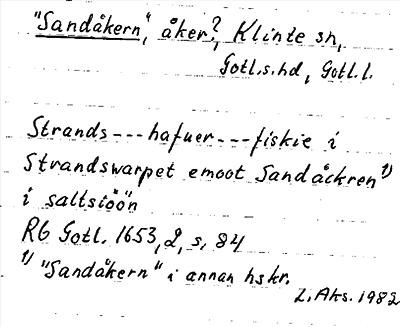 "Sandåkern", åker?, Klinte sn,
Gotl.s.hd, Gotl.l.
Strands---hafuer---fiskie i
Strandswarpet emoot Sandåckren 1)
i saltsiöön
RG Gotl. 1653, 2, s. 84
1) "Sandåkern" i annan hskr.
L. Aks. 1982